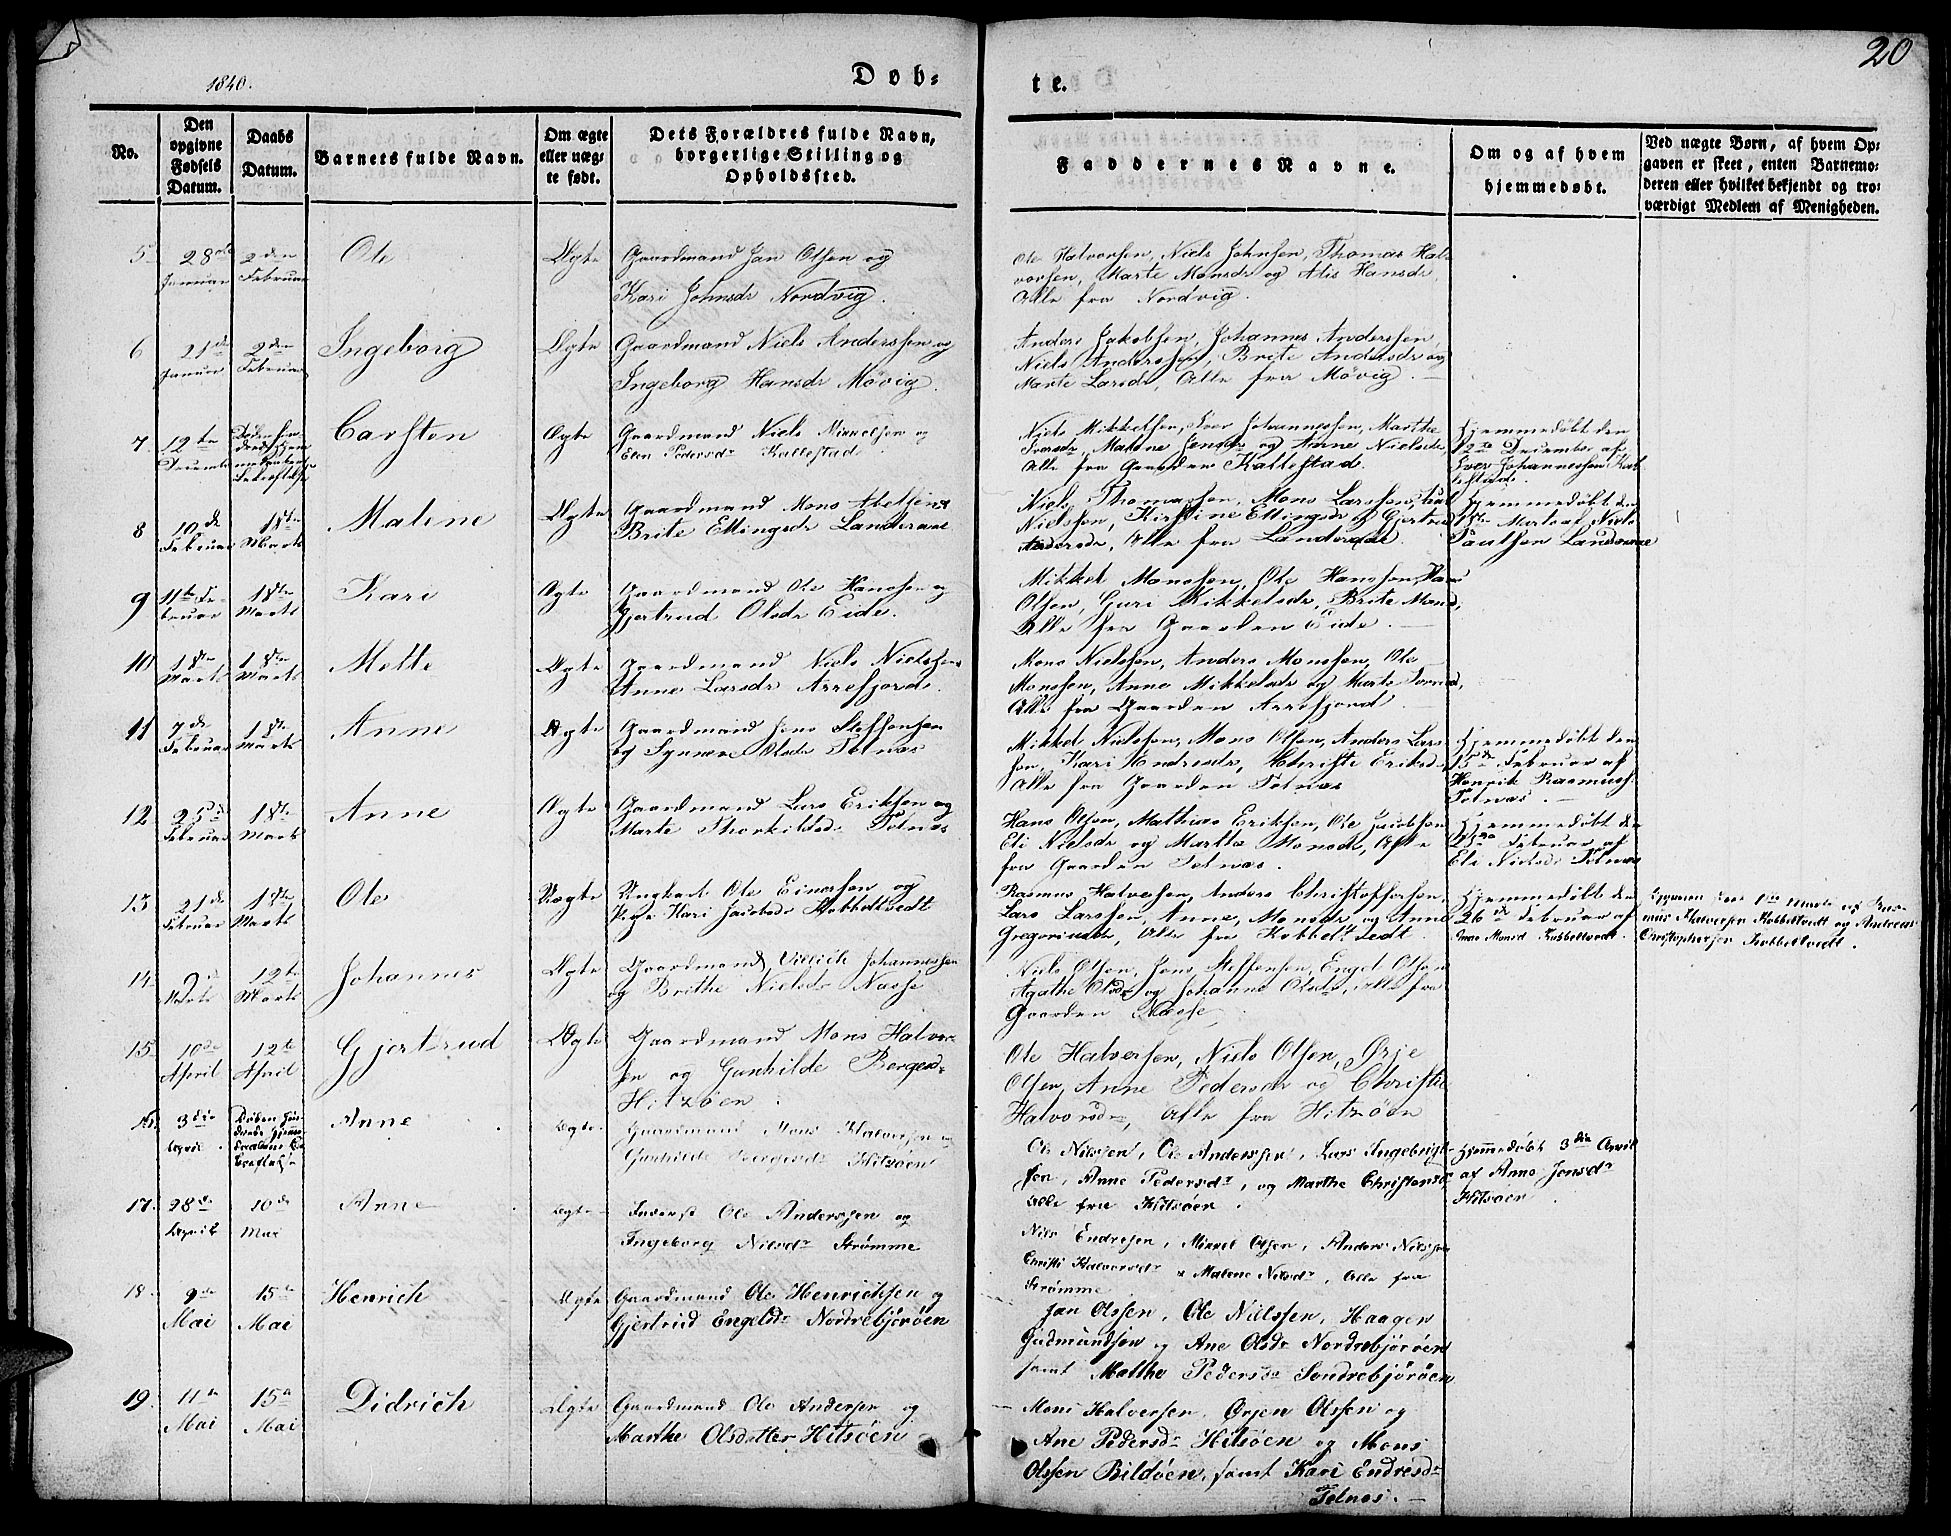 20
1840.
Døb=
te.
No.
Den opgivne Fødsels Datum.
Daabs Datum.
Barnets fulde Navn.
Om ægte eller uægte født.
Dets Forældres fulde Navn, borgerlige Stilling og Opholdssted.
Faddernes Navne.
Om og af hvem hjemmedøbt.
Ved uægte Børn, af hvem Opgaven er skeet, enten Barnemoderen eller hvilket bekjendt og troværdigt Medlem af Menigheden.
5 28de Januar 2den Februar Ole Ægte Gaardmand Jan Olsen og
Kari Johnsdr Nordvig.
Ole Halvorsen, Niels Johnsen, Thomas Hal-
vorsen, Marte Monsdr og Alis Hansdr,
Alle fra Nordvig.
6 21de Januar 2den Februar Ingeborg Ægte Gaardmand Niels Anderssen og
Ingeborg Hansdr Møvig.
Anders Jakobsen, Johannes Anderssen,
Niels Anderssen, Brite Andersdr og
Marte Larsdr, Alle fra Møvig.
7 12te December Carsten Ægte Gaardmand Niels Mikkelsen og
Elen Pedersdr Kallestad
Niels Mikkelsen, Iver Johannessen, Marthe
Iversdr, Malene Jensdr og Anne Nielsdr,
Alle fra Gaarden Kallestad.
Hjemmedøbt den
12te December af
Iver Johannessen Kal-
lestad.
8 10de Februar 1ste Marts Malene Ægte Gaardmand Mons Abelsen &
Brite Ellingsdr Landeraae
Niels Thomassen, Mons Larssen,
Nielssen, Kirstine Ellingsdr og Gjertrud
Andersdr, Alle fra Landeraae.
Hjemmedøbt den
Marts af Niels
Paulsen Landeraae
9 11te Februar 1ste Marts Kari Ægte Gaardmand Ole Hanssen og
Gjertrud Olsdr Eide.
Mikkel Monssen, Ole Hanssen, Hans
Olsen, Guri Mikkelsdr, Brite Monsd,
Alle fra Gaarden Eide.
10 1ste Marts 1ste Marts Mette Ægte Gaardmand Niels Nielssen
Anne Larsdr Arrefjord.
Mons Nielssen, Anders Monssen, Ole
Monssen, Anne Mikkelsdr og Marte Iversd,
Alle fra Gaarden Arrefjord
11 7de Februar 1ste Marts Anne Ægte Gaardmand Jens Steffensen
og Synneve Olsdr Tølnæs
Mikkel Nielssen, Mons Olsen, Anders Lars-
sen, Kari Andresdr, Christi Eriksd,
Alle fra Gaarden Tølnæs
Hjemmedøbt den
15de Februar af
Henrik Rasmuss.
Tølnæs.
12 25de Februar 1ste Marts Anne Ægte Gaardmand Lars Eriksen og
Marte Thorkildsdr Tølnæs
Hans Olsen, Mathias Eriksen, Ole Jacobsen
Eli Nielsdr og Marthe Monsdr, Alle
fra Gaarden Tølnæs.
Hjemmedøbt den
25de Februar af
Eli Nielsdr Tølnæs
13 21de Februar 1ste Marts Ole Uægte Ungkarl Ole Einersen og
Pige Kari Jacobsdr Kobbeltvedt
Rasmus Halversen, Anders Christoffersen,
Lars Larssen, Anne Monsdr og Anne
Gregoriusdr, Alle fra Kobbeltvedt.
Hjemmedøbt den
26de Februar af
Monsd Kobbeltvedt.
Opgaven skeet 1ste Marts af Ras-
mus Halversen Kobbeltvedt og Andreas
Christophersen Kobbeltvedt.
14 9de Marts 12te Marts Johannes Ægte Gaardmand Villich Johannessen
og Brithe Nielsdr Næsse
Niels Olsen, Jens Steffensen, Engel Olsen
Agathe Olsdr og Johanne Olsdr, Alle fra
Gaarden Næsse
15 10de April 12te April Gjertrud Ægte Gaardmand Mons Halvor-
sen og Gunhilde Børgesd
Hitzøen.
Ole Halversen, Niels Olsen, Ørje
Olsen, Anne Pedersdr og Christi
Halvorsdr, Alle fra Hitzøen
3die April Anne Ægte Gaardmand Mons Halversen og
Gunhilde Børgesdr Hitsøen
Ole Nilssen, Ole Anderssen, Lars Ingebrigt-
sen, Anne Pedersdr, og Marthe Christensdr,
Alle fra Hitsøen.
Hjemmedøbt 3die April
af Anne Jonsdr
Hitsøen
17. 28de April 10de Mai Anne Ægte Inderst Ole Anderssen og
Ingeborg Nilsdr Strømme
Nils Endresen, Mikkel Olsen, Anders Nilssen
Christi Halvorsdr & Malene Nilsdr, Alle fra
Strømme
18. 9de Mai 15de Mai Henrich Ægte Gaardmand Ole Henrichsen og
Gjertrud Engelsdr Nordrebjørøen
Jan Olssen, Ole Nielssen, Haagen
Gudmundsen og Ane Olsdr Nordrebjørøen
samt Malthe Pedersdr Søndrebjørøen
19. 11te Mai 15de Mai Didrich Ægte Gaardmand Ole Andersen og
Marthe Olsdatter Hitsøen
Mons Halversen, Ørjen Olssen og
Ane Pedersdr Hitsøen og Mons
Olssen Bildøen, samt Kari Endresdr
Tølnæs.